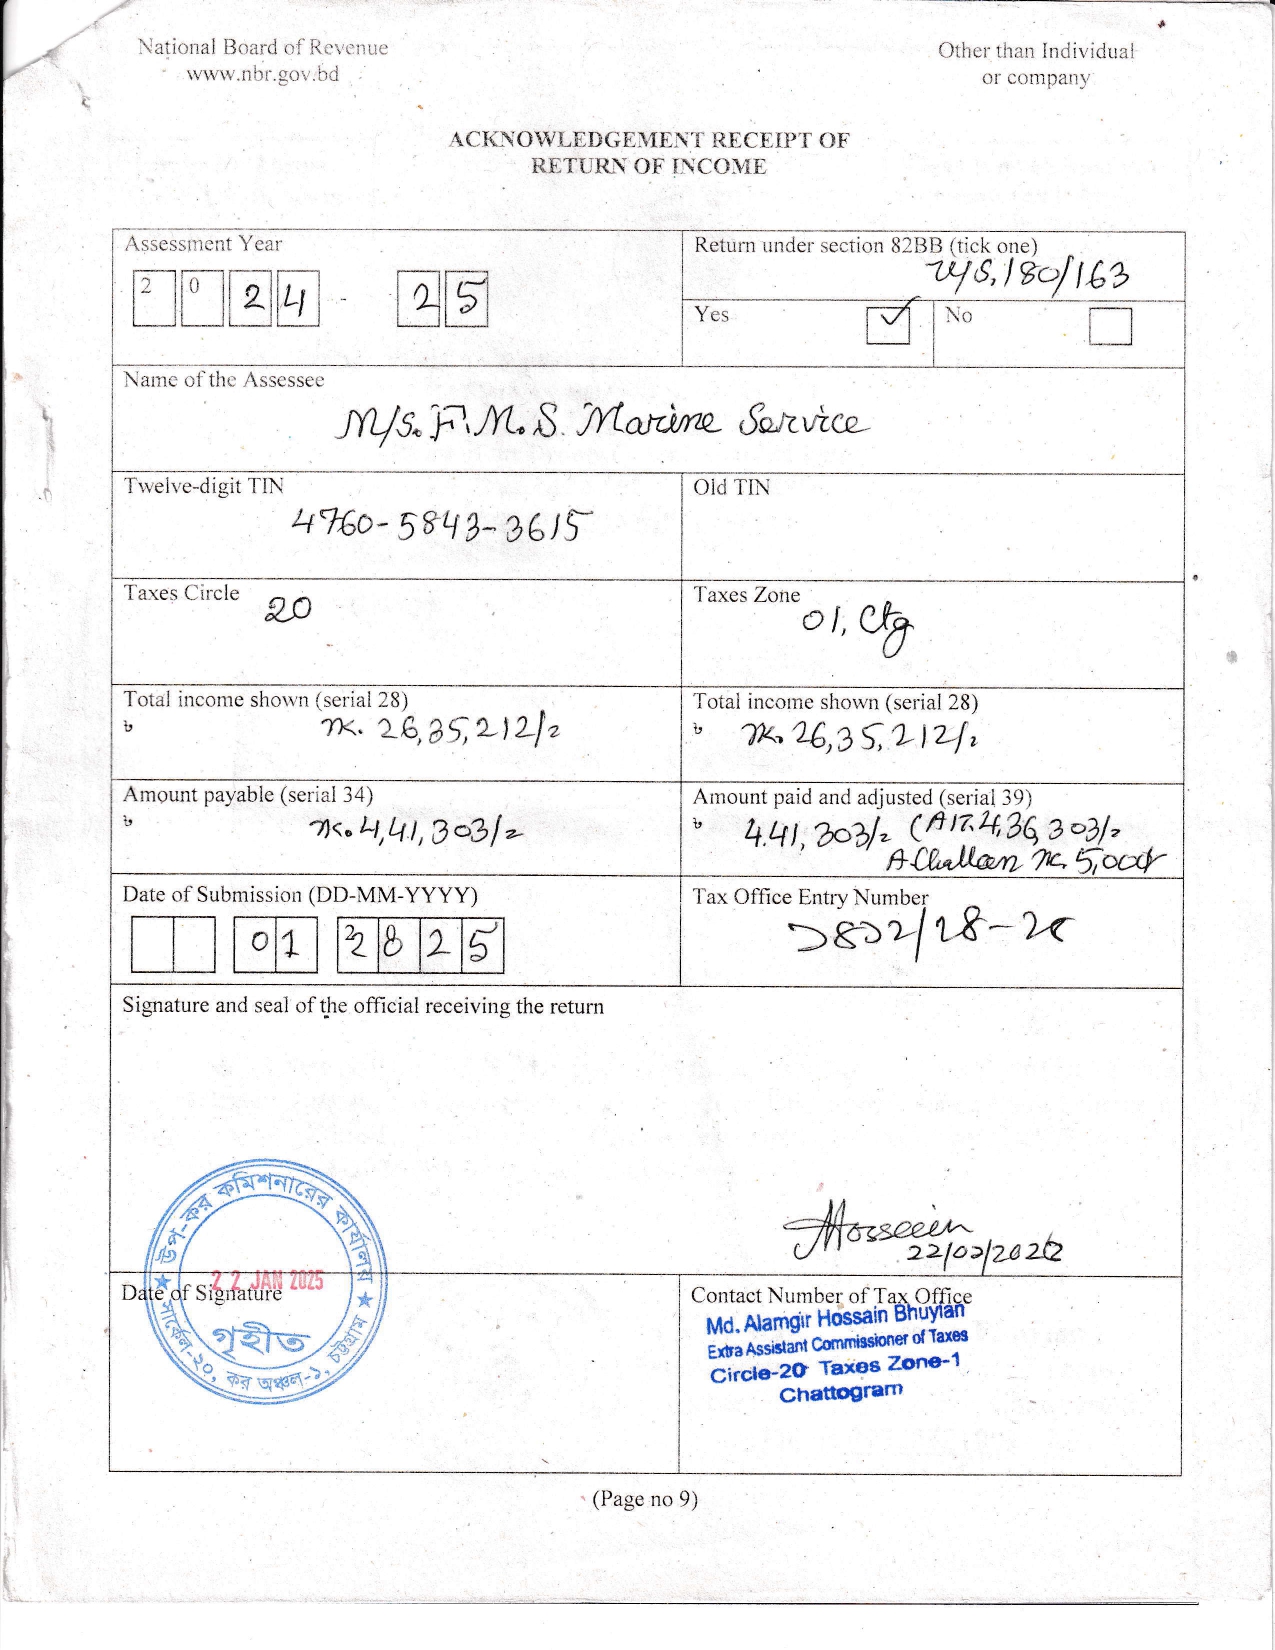 National Board of Revenue
www.nbr.gov.bd
Other than Individual
or company
ACKNOWLEDGEMENT RECEIPT OF
RETURN OF INCOME
Assessment Year
2 0 2 4 - 2 5
Return under section 82BB (tick one)
U/S, 180/163
Yes ✓ No
Name of the Assessee
M/S. F.M.S. Marine Service
Twelve-digit TIN
4760-5843-3615
Old TIN
Taxes Circle 20
Taxes Zone
01, Ctg
Total income shown (serial 28)
৳ TK. 26,35,212/=
Total income shown (serial 28)
৳ TK. 26,35,212/=
Amount payable (serial 34)
৳ TK. 4,41,303/=
Amount paid and adjusted (serial 39)
৳ 4.41,303/= (AIT. 4,36,303/=
A-Challan TK. 5,000/
Date of Submission (DD-MM-YYYY)
0 1 2 5
Tax Office Entry Number
Signature and seal of the official receiving the return
Hossain
উপ-কর কমিশনারের কার্যালয়
সার্কেল-২০, কর অঞ্চল-১, চট্টগ্রাম
22 JAN 2025
গৃহীত
Date of Signature
Contact Number of Tax Office
Md. Alamgir Hossain Bhuyian
Extra Assistant Commissioner of Taxes
Circle-20 Taxes Zone-1
Chattogram
(Page no 9)